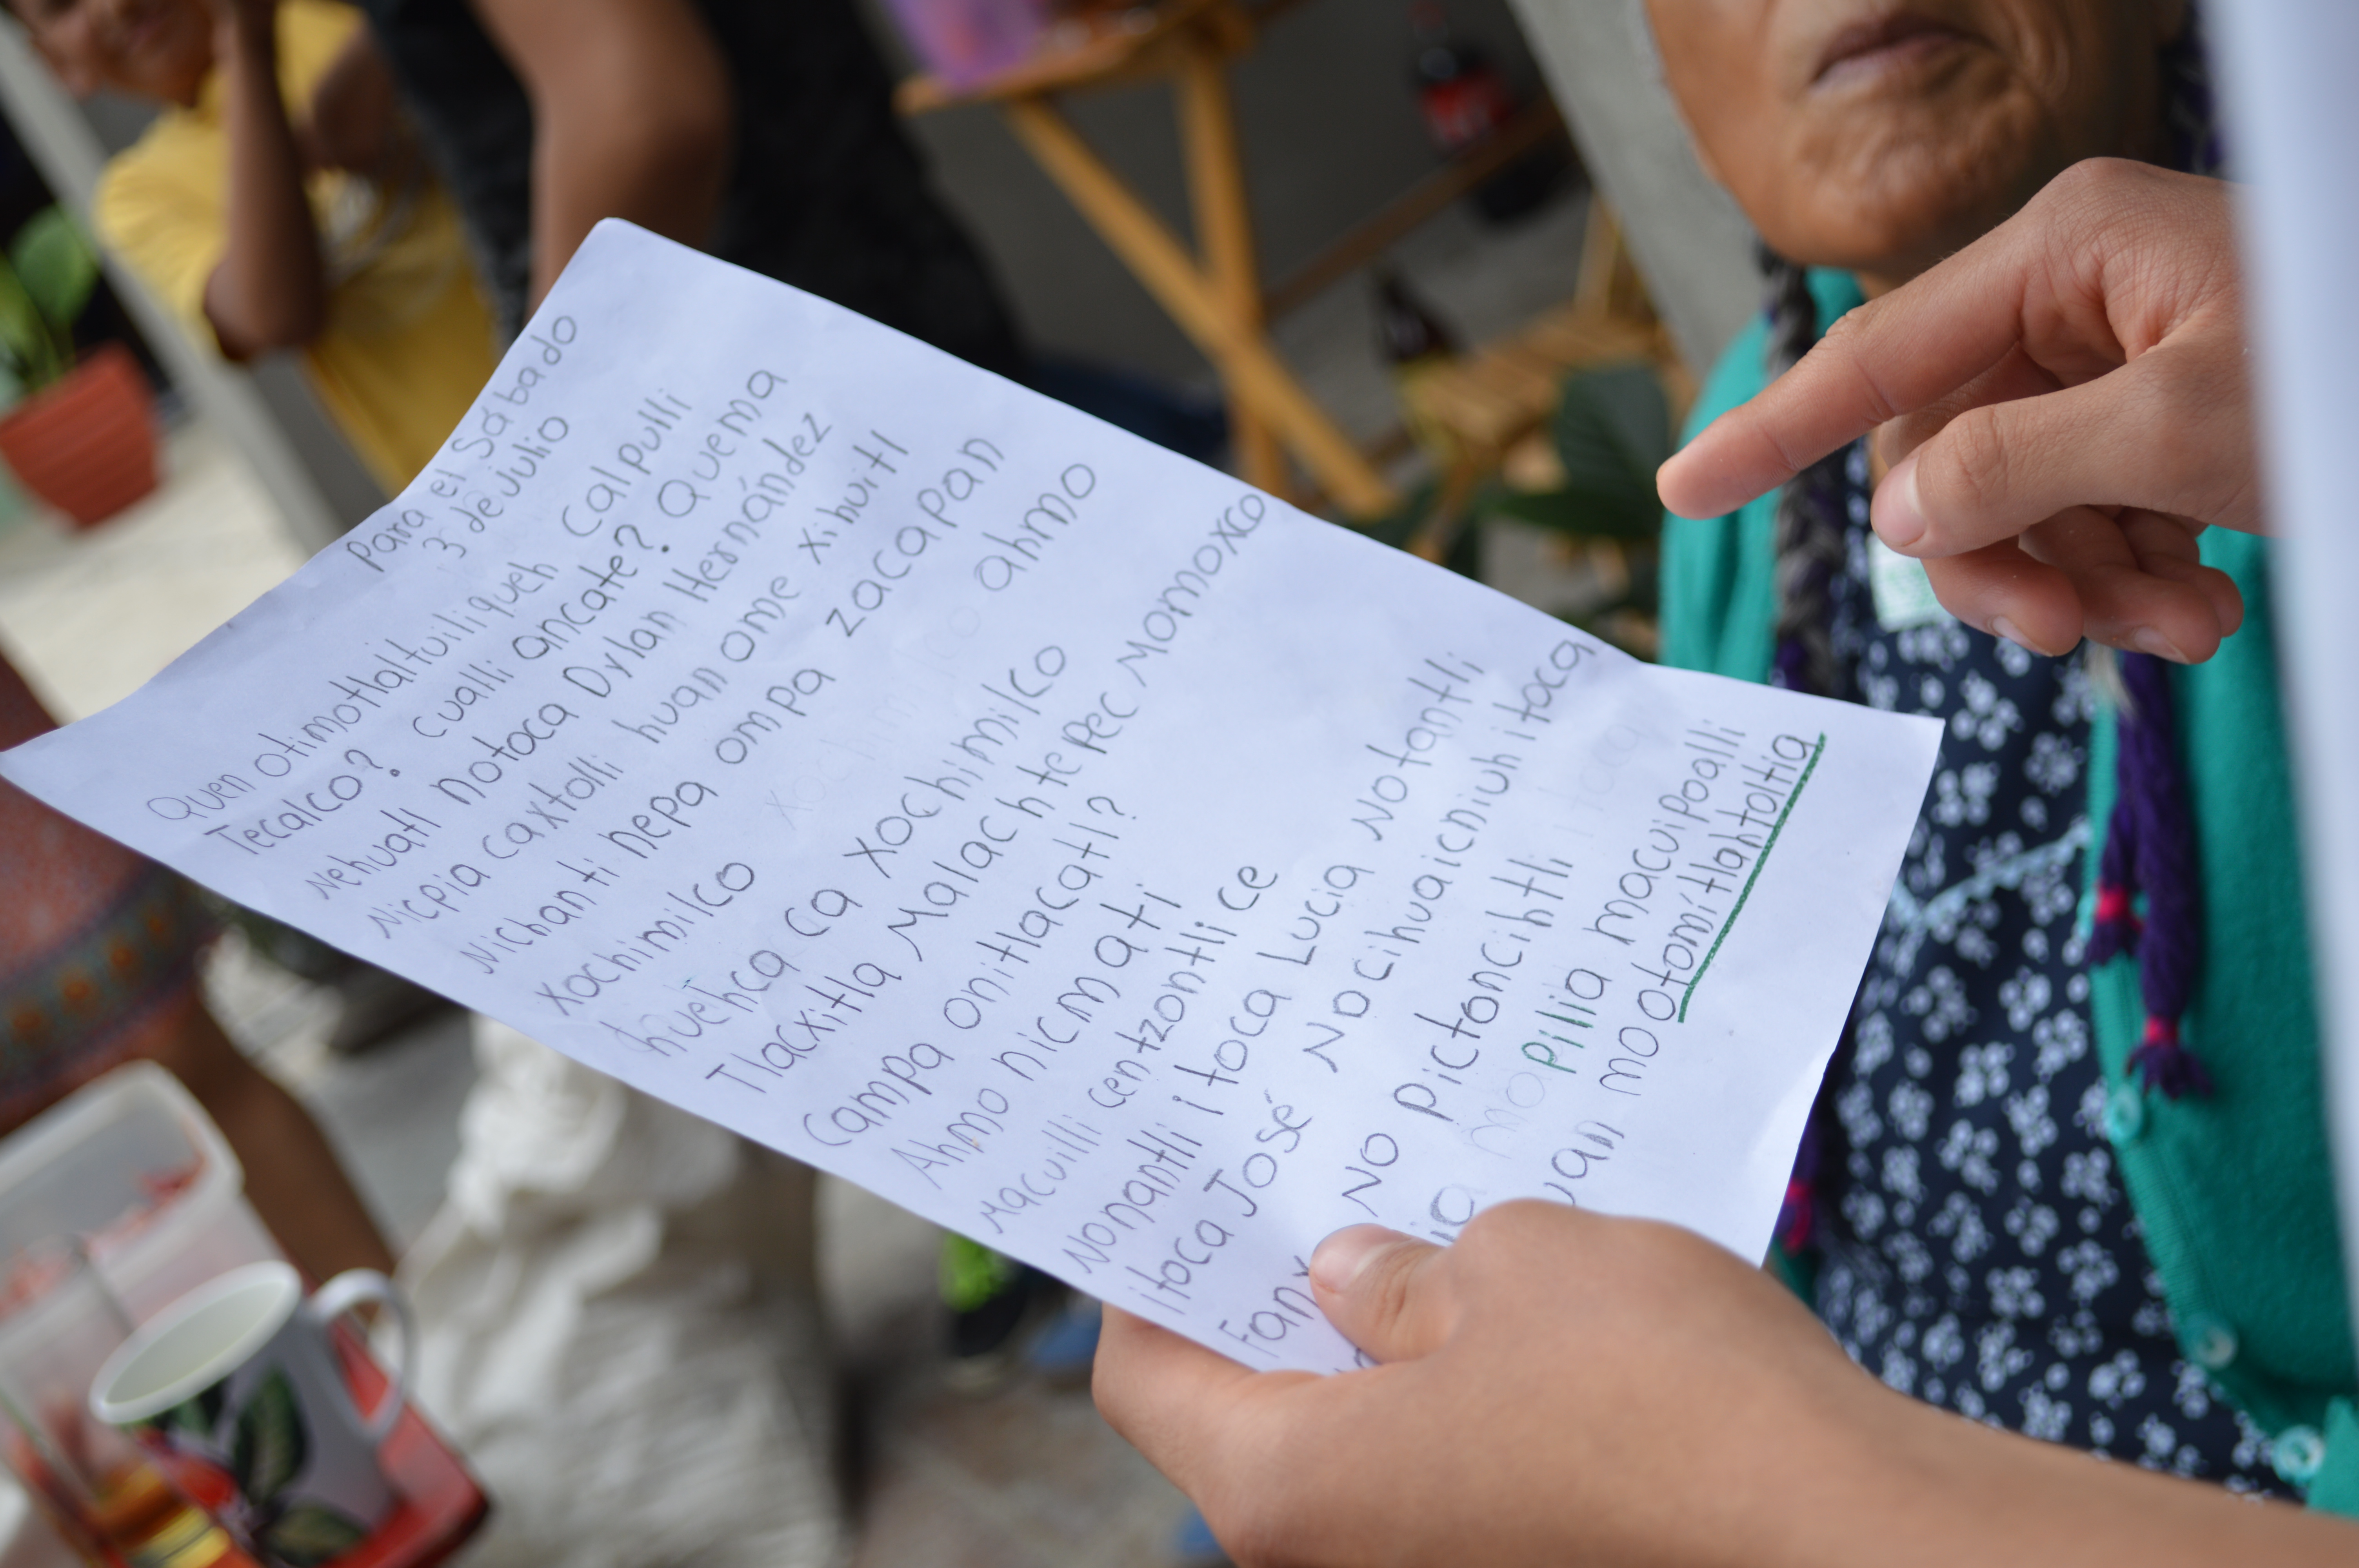 Para el Sábado
3 de julio
Quen otimotlaltuiliqueh Calpulli
Tecalco? cualli ancate? Quema
Nehuatl notoca Dylan Hernández
Nicpia caxtolli huan ome xihuitl
Nichanti nepa ompa zacapan
Xochimilco xochimilco ahmo
huehca ca Xochimilco
Tlacxitla Malachtepec Momoxco
Campa onitlacatl?
Ahmo nicmati
Macuilli centzontli ce
Nonantli itoca Lucia Notantli
itoca José Nocihuaicniuh itoca
Fany No pictoncihtli itoca
pilia macuipoalli
mootomitlahtoltia